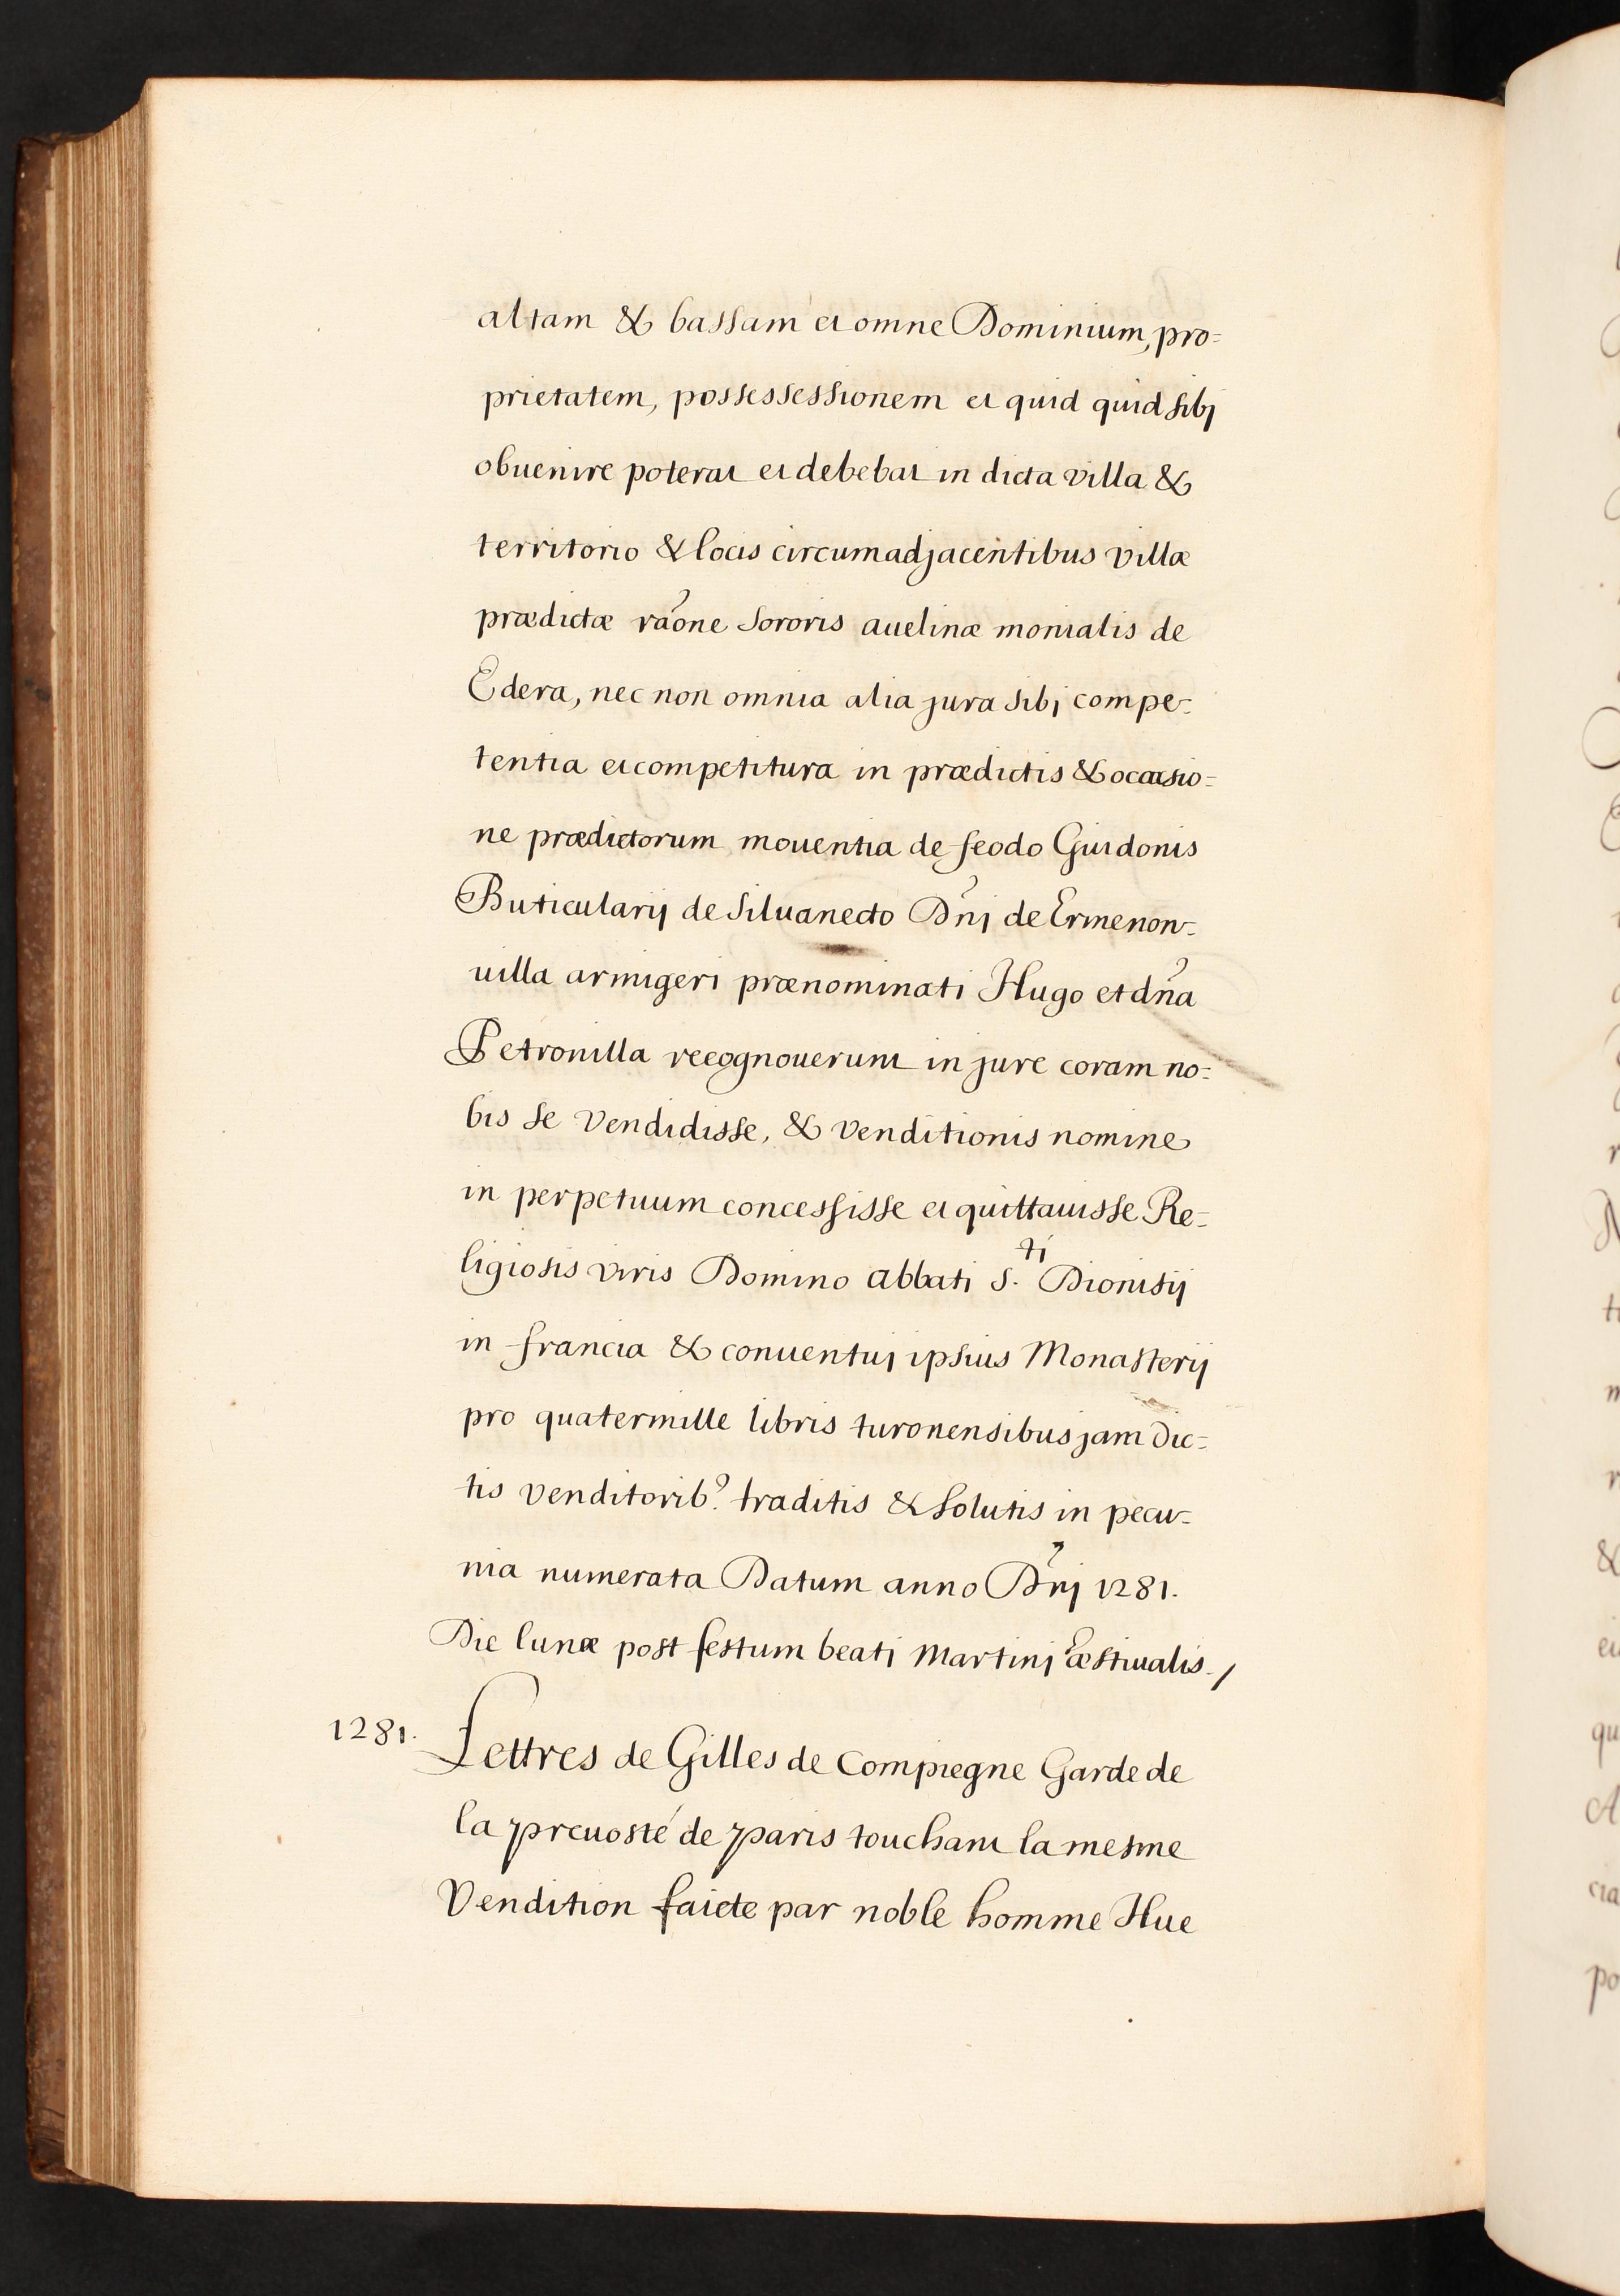 altam & bassam et omne Dominium, pro=
prietatem, possessessionem et quid quid sibj
obuenire poterat et debebat in dicta villa &
territorio & locis circumadjacentibus villæ
prædictæ raone sororis auelinæ monialis de
Edera, nec non omnia alia jura sibj compe=
tentia et competitura in prædictis & occasio=
ne prædictorum mouentia de feodo Guidonis
Buticularij de siluanecto Dnj de Ermenon=
uilla armigeri prænominati Hugo et dna
Petronilla recognouerunt in jure coram no=
bis se vendidisse, & venditionis nomine
in perpetuum concessisse et quittauisse Re=
ligiosis viris Domino abbati S.ti Dionisij
in francia & conuentuj ipsius Monasterij
pro quatermille libris turonensibus jam dic=
tis venditorib? traditis & solutis in pecu=
nia numerata Datum anno Dnj 1281.
Die lunæ post festum beati Martinj æstiualis./
1281. Lettres de Gilles de Compiegne Garde de
la preuosté de paris touchant la mesme
Vendition faicte par noble homme Hue